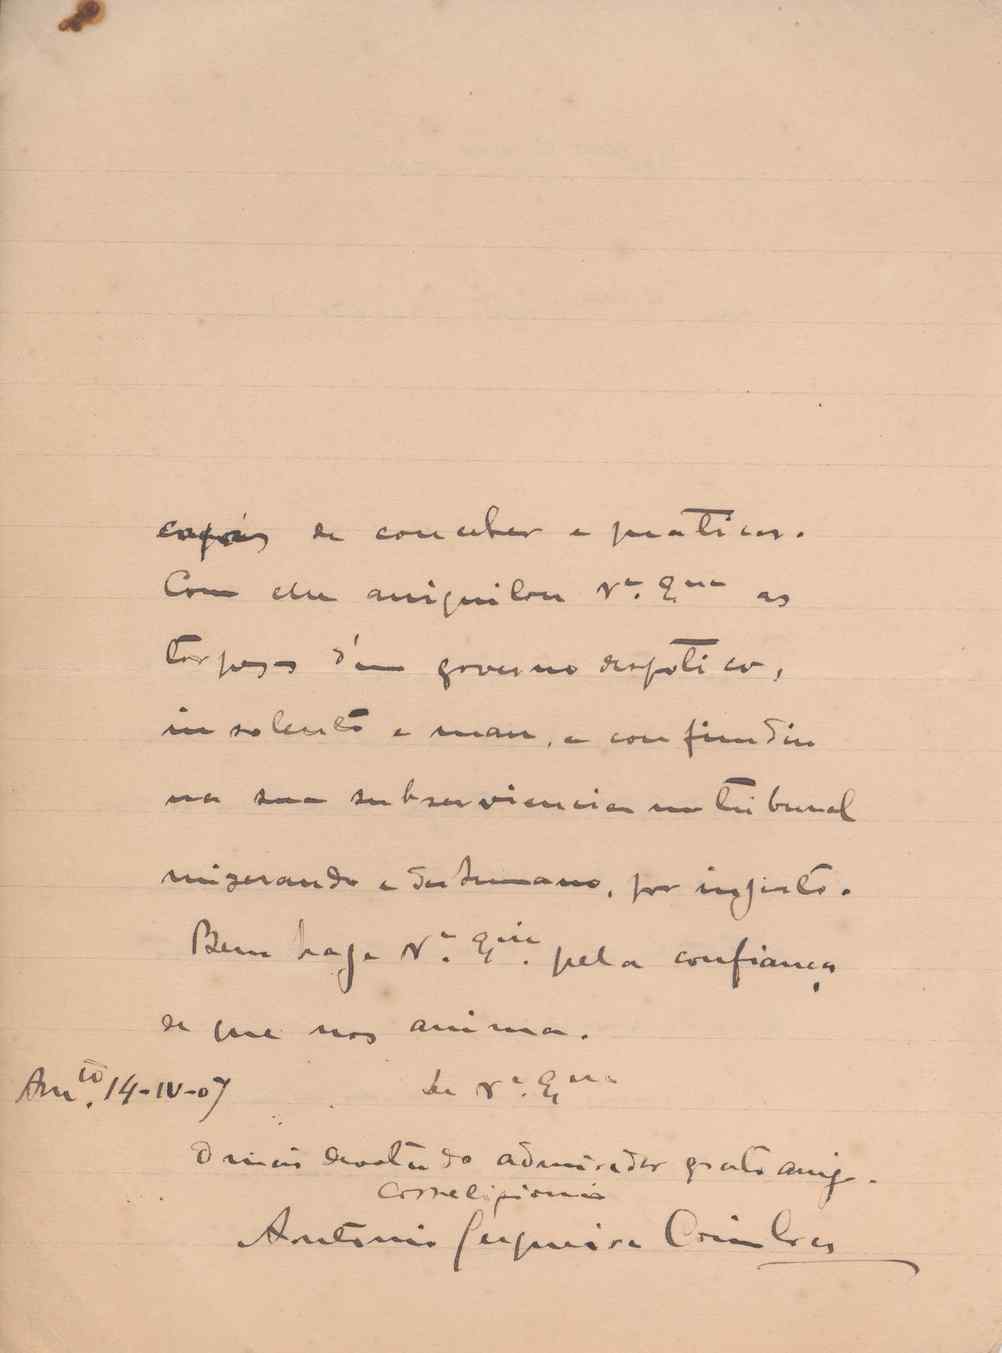 capás de conceber e praticar.
Com elle aniquilou V.ª Ex.ma as
torpezas d'um governo despotico,
insolente e mau, e confundiu
na sua subserviencia um tribunal
mizerando e deshumano, por injusto.
Bem haja V.ª Ex.cia pela confiança
de que nos anima.
Am.to 14-IV-07 De V.ª Ex.cia
O mais devotado admirador grato amig.
correligionario
Antonio Cerqueira Coimbra